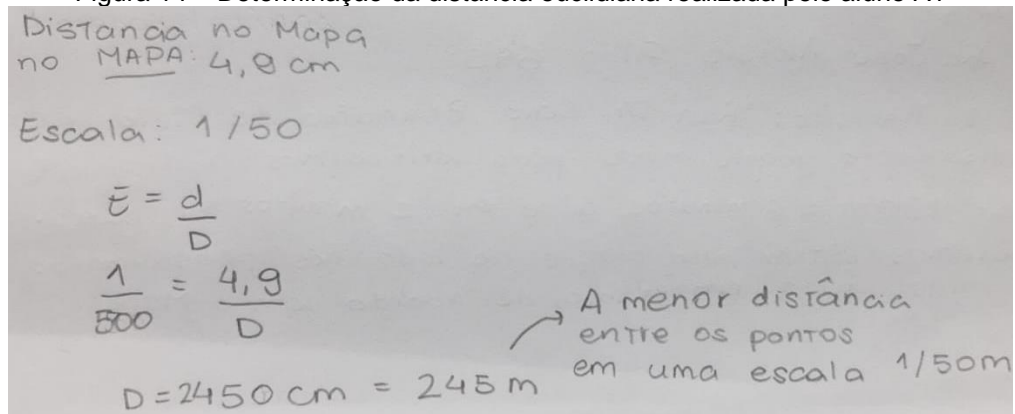 Distancia no Mapa
no MAPA: 4,9 cm
Escala: 1/50
E = d/D
1/500 = 4,9/D
D = 2450 cm = 245 m
A menor distância
entre os pontos
em uma escala 1/50m